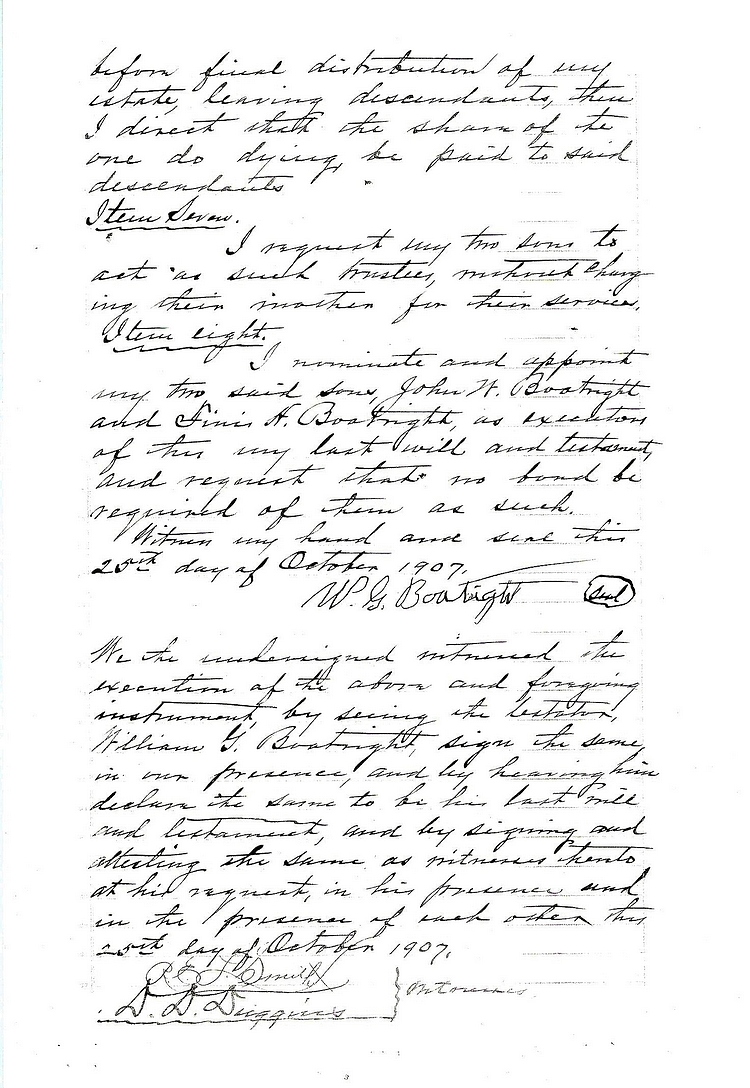 before final distribution of my
estate, leaving descendants, then
I direct that the share of the
one do dying, be paid to said
descendants
Item Seven.
I request my two sons to
act as such trustees, without charg
ing their mother for their services.
Item eight.
I nominate and appoint
my two said sons, John W. Boatright
and Finis H. Boatright, as executors
of this my last will and testament,
and request that no bond be
required of them as such.
Witness my hand and seal this
25th day of October 1907.
W. G. Boatright Seal
We the undersigned witnessed the
execution of the above and foregoing
instrument, by seeing the testator,
William G. Boatright, sign the same,
in our presence, and by hearing him
declare the same to be his last will
and testament, and by signing and
attesting the same as witnesses thereto
at his request, in his presence and
in the presence of each other this
25th day of October 1907.
Smith
D. D. Duggins Witnesses